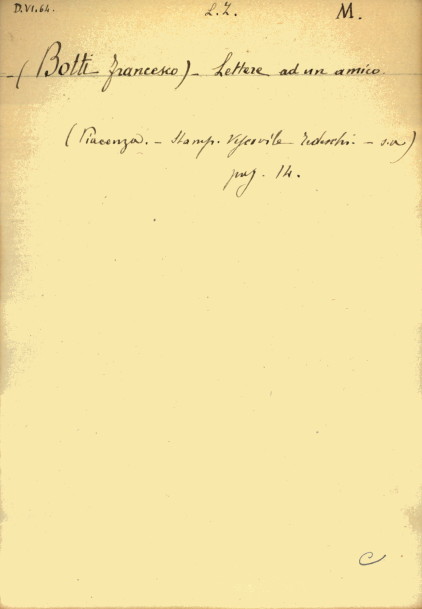 D.VI.64. L.Z. M.
-(Botti Francesco)- Lettere ad un amico.
(Piacenza. - Stamp. Vescovile Tedeschi. - s.a)
pag. 14.
C